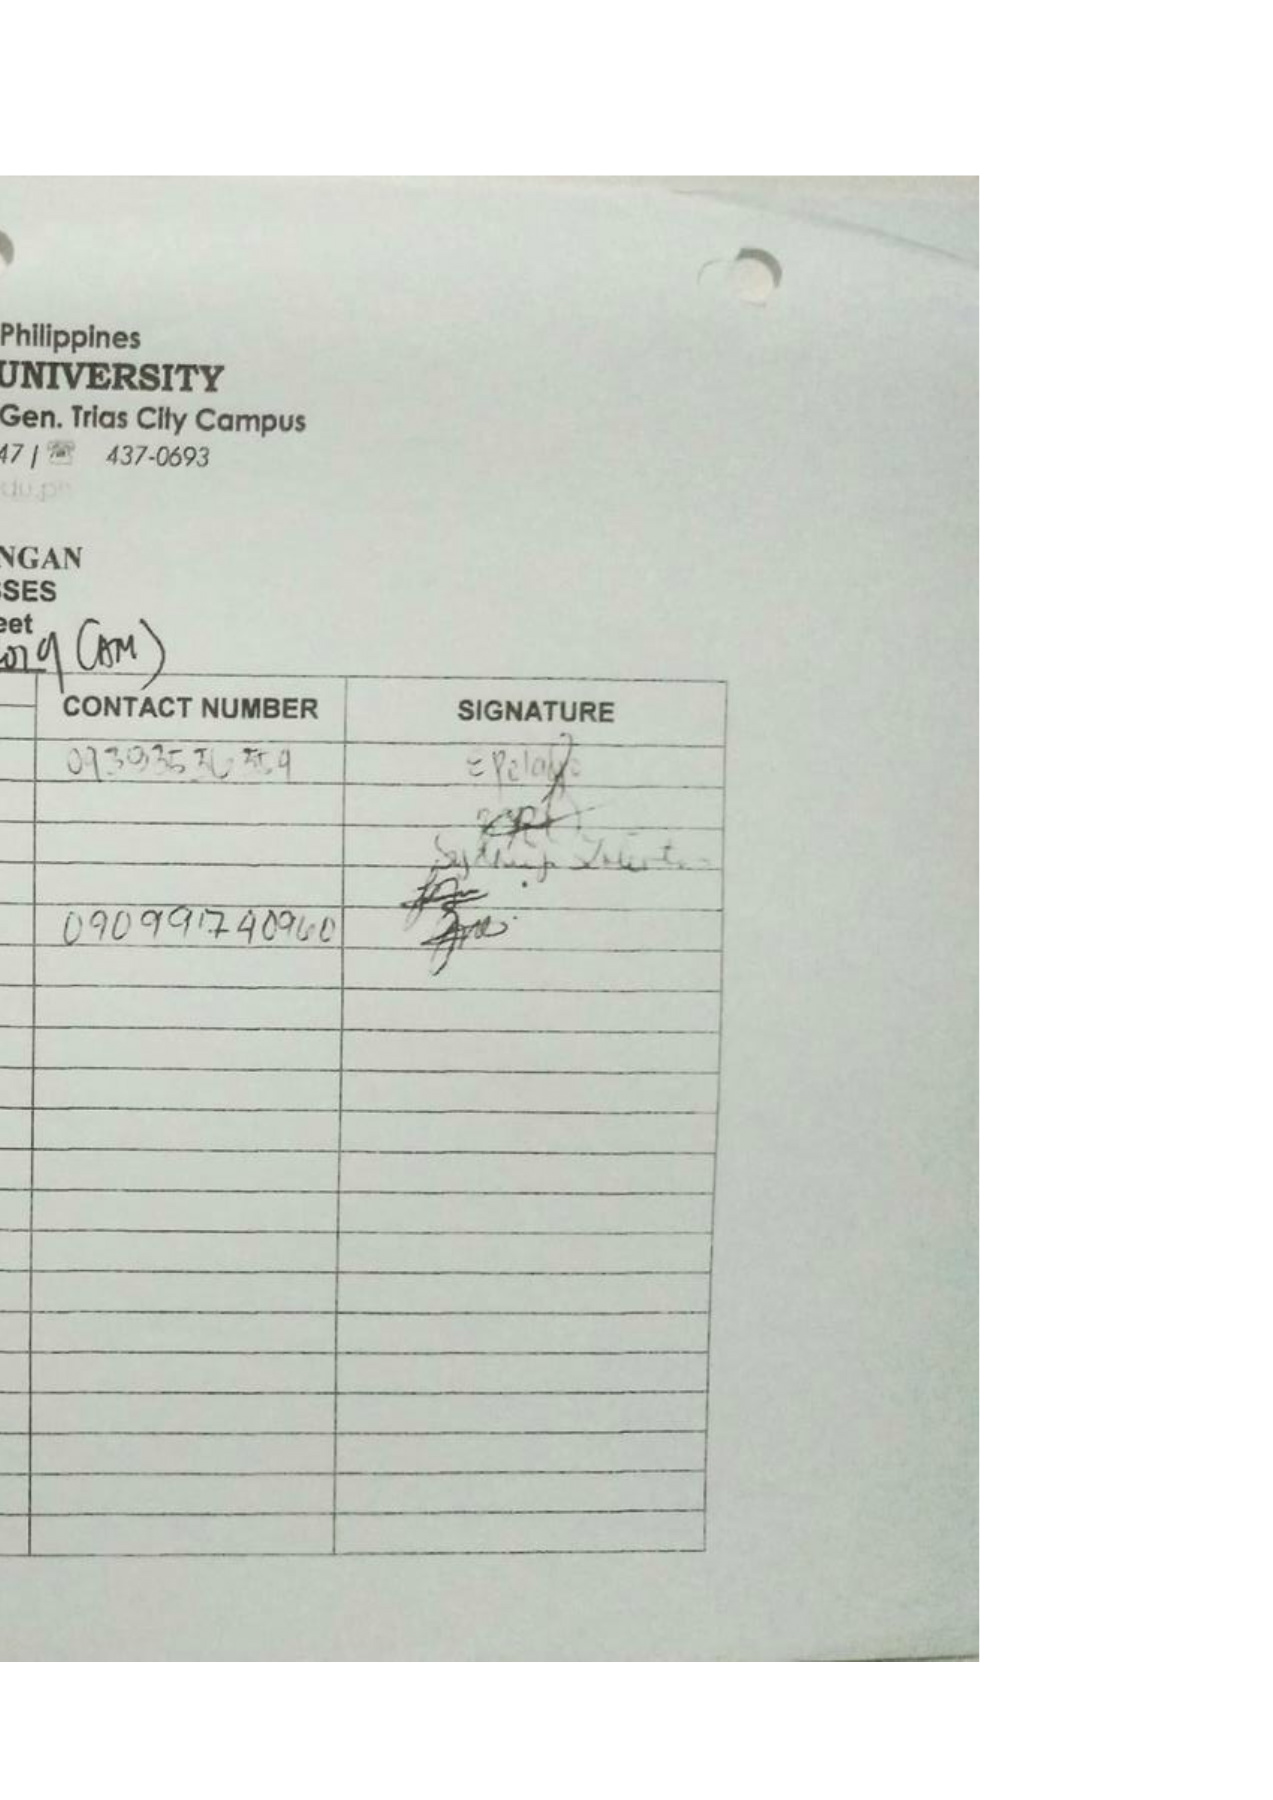 Philippines
UNIVERSITY
Gen. Trias City Campus
47 | ☏ 437-0693
du.ph
NGAN
SSES
eet
2019 (AM)
CONTACT NUMBER SIGNATURE
09393536359
090991740960